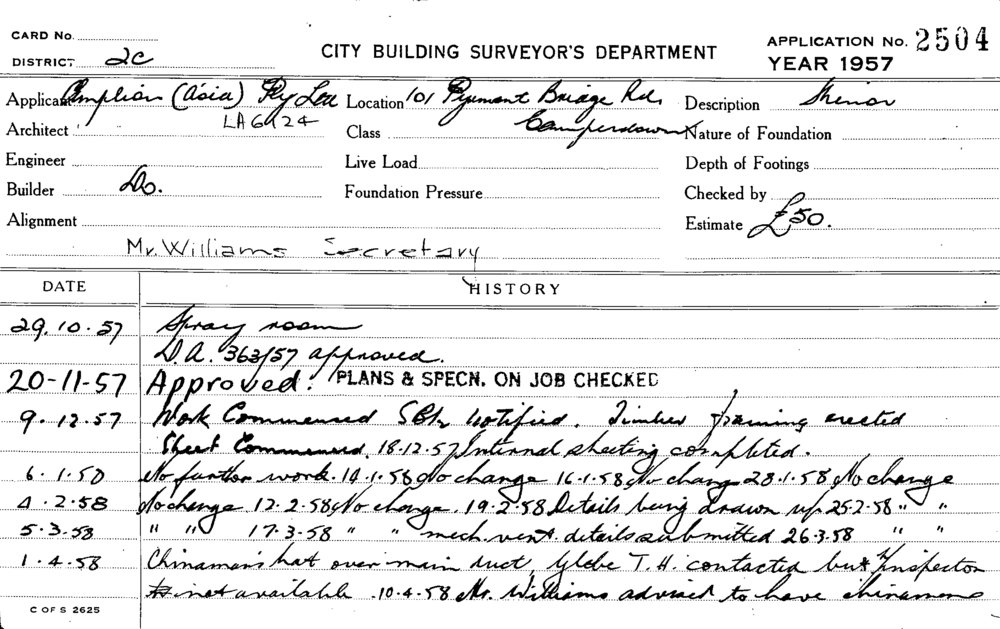 CARD No.
DISTRICT 2C
CITY BUILDING SURVEYOR'S DEPARTMENT
APPLICATION No. 2504
YEAR 1957
Applicant Amplion (Asia) Pty Ltd
LA6124
Location 101 Pyrmont Bridge Rd,
Camperdown
Description Minor
Architect
Class
Nature of Foundation
Engineer
Live Load
Depth of Footings
Builder Do.
Foundation Pressure
Checked by
Alignment
Estimate £50.
Mr. Williams Secretary
DATE
HISTORY
29.10.57 Spray room
D.A. 363/57 approved.
20-11-57 Approved. PLANS & SPECN. ON JOB CHECKED
9.12.57 Work Commenced notified. Timber framing erected
Sheet Commenced. 18.12.57 Internal sheeting completed.
6.1.58 No further work. 14.1.58 No change 16.1.58 No change 28.1.58 No change
4.2.58 No change 12.2.58 No change. 19.2.58 Details being drawn up 25.2.58 " "
5.3.58 " " 17.3.58 " " mech. vent. details submitted 26.3.58 " "
1.4.58 Chinaman's hat over main duct, Glebe T.H. contacted but Inspector
not available. 10.4.58 Mr. Williams advised to have chinamans
C OF S 2625